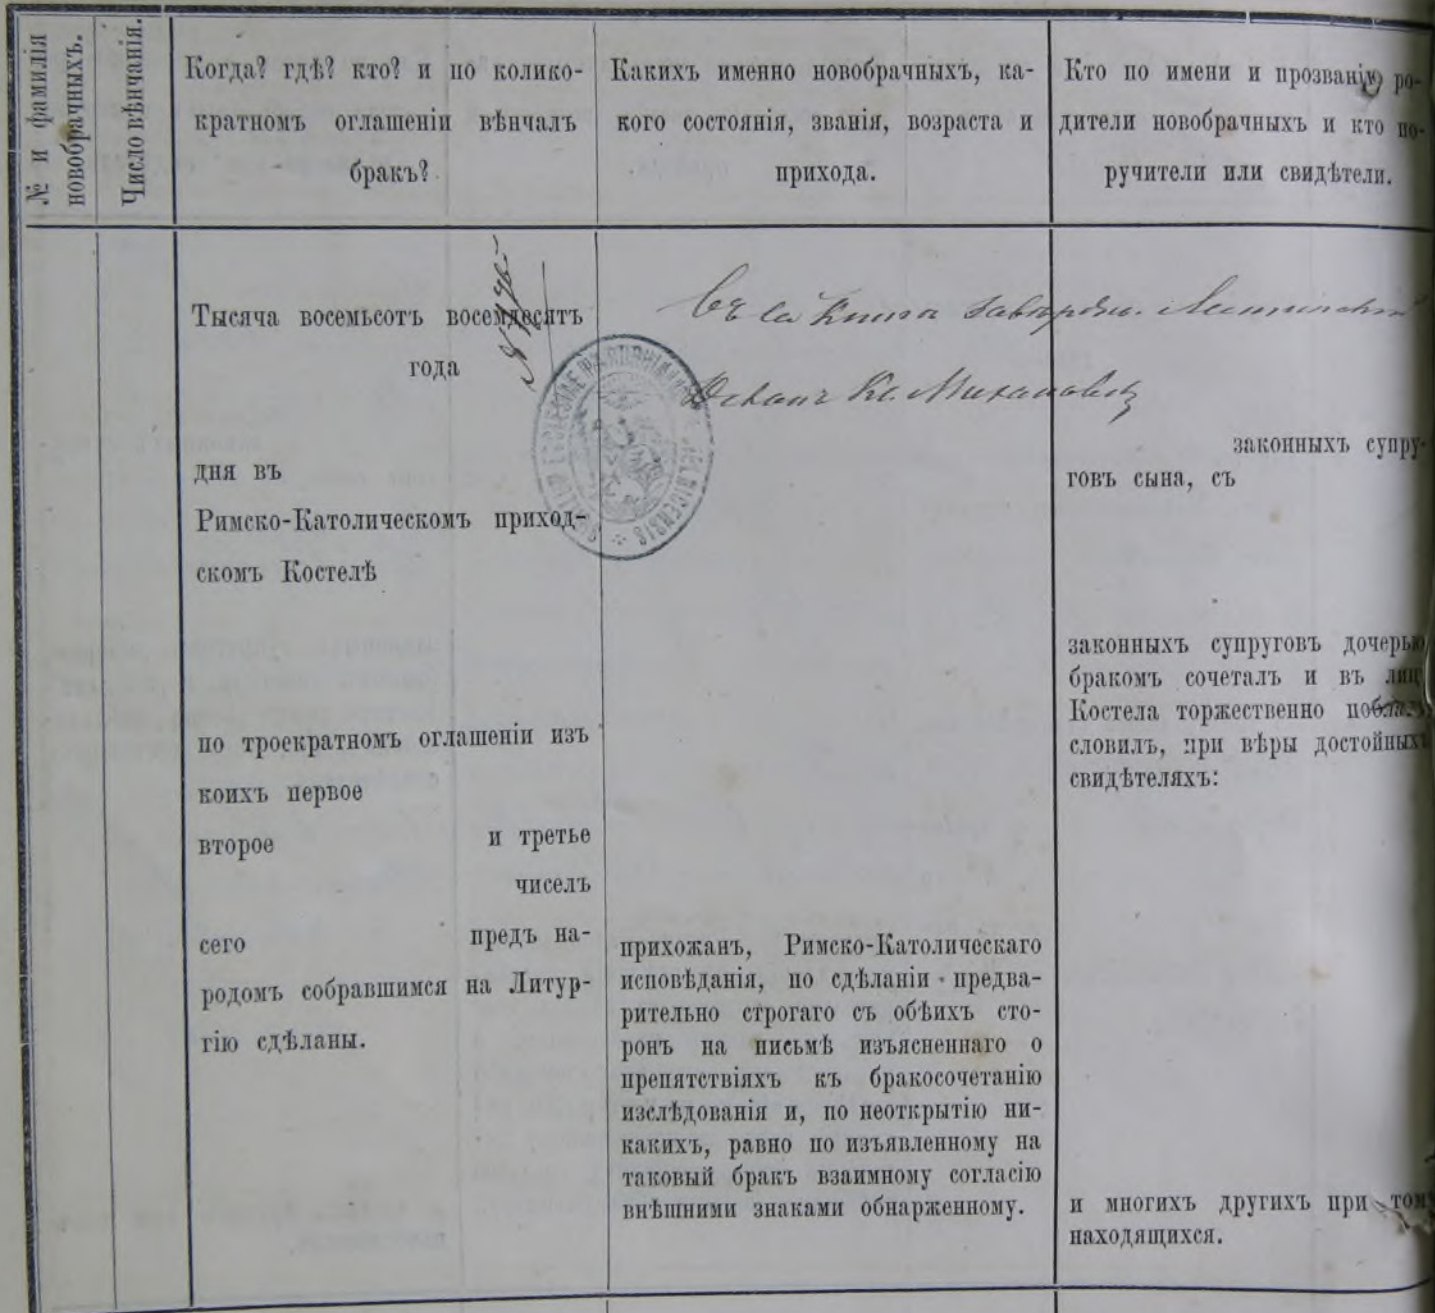 № и фамилія
новобрачныхъ.
Число вѣнчанія.
Когда? гдѣ? кто? и по колико-
кратномъ оглашеніи вѣнчалъ
бракъ?
Какихъ именно новобрачныхъ, ка-
кого состоянія, званія, возраста и
прихода.
Кто по имени и прозванію ро-
дители новобрачныхъ и кто по-
ручители или свидѣтели.
Тысяча восемьсотъ восемдесятъ
года
дня въ
Римско-Католическомъ приход-
скомъ Костелѣ
по троекратномъ оглашеніи изъ
коихъ первое
второе и третье
чиселъ
сего предъ на-
родомъ собравшимся на Литур-
гію сдѣланы.
Книга
Деканъ Кс. Михаловичъ
прихожанъ, Римско-Католическаго
исповѣданія, по сдѣланіи предва-
рительно строгаго съ обѣихъ сто-
ронъ на письмѣ изъясненнаго о
препятствіяхъ къ бракосочетанію
изслѣдованія и, по неоткрытію ни-
какихъ, равно по изъявленному на
таковый бракъ взаимному согласію
внѣшними знаками обнарженному.
законныхъ супру-
говъ сына, съ
законныхъ супруговъ дочерью
бракомъ сочеталъ и въ лиц
Костела торжественно побла
словилъ, при вѣры достойныхъ
свидѣтеляхъ:
и многихъ другихъ при том
находящихся.